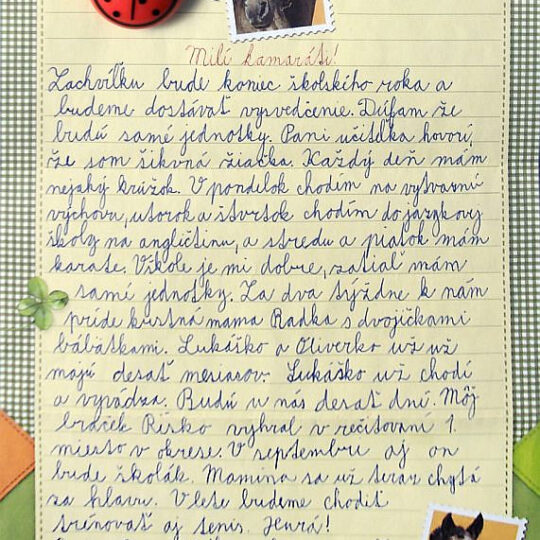 Milí kamaráti!
Zachvíľku bude koniec školského roka a
budeme dostávať vysvedčenie. Dúfam že
budú samé jednotky. Pani učiteľka hovorí,
že som šikvná žiačka. Každý deň mám
nejaký krúžok. V pondelok chodím na vytvarnú
výchovu, utorok a štvrtok chodím do jazykovej
školy na angličtinu, a stredu a piatok mám
karate. Vškole je mi dobre, zatiaľ mám
samé jednotky. Za dva týždne k nám
príde krstná mama Radka s dvojičkami
bábätkami. Lukáško a Oliverko už už
majú desať mesiacov. Lukáško už chodí
a vyvádza. Budú u nás desať dní. Môj
bráček Riško vyhral v recitovaní 1.
miesto v okrese. V septembru aj on
bude školák. Mamina sa už teraz chytá
za hlavu. V lete budeme chodiť
trénovať aj tenis. Hurá!